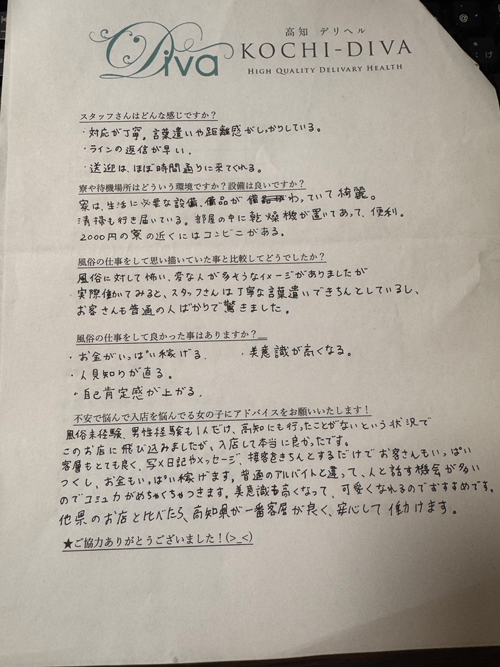 高知 デリヘル
Diva KOCHI-DIVA
HIGH QUALITY DELIVARY HEALTH
スタッフさんはどんな感じですか？
・対応が丁寧。言葉遣いや距離感がしっかりしている。
・ラインの返信が早い。
・送迎は、ほぼ時間通りに来てくれる。
寮や待機場所はどういう環境ですか？設備は良いですか？
寮は、生活に必要な設備、備品が備わっていて綺麗。
清掃も行き届いている。部屋の中に乾燥機が置いてあって、便利。
2000円の寮の近くにはコンビニがある。
風俗の仕事をして思い描いていた事と比較してどうでしたか？
風俗に対して怖い、変な人が多そうなイメージがありましたが
実際働いてみると、スタッフさんは丁寧な言葉遣いできちんとしているし、
お客さんも普通の人ばかりで驚きました。
風俗の仕事をして良かった事はありますか？
・お金がいっぱい稼げる。 ・美意識が高くなる。
・人見知りが直る。
・自己肯定感が上がる。
不安で悩んで入店を悩んでる女の子にアドバイスをお願いいたします！
風俗未経験、男性経験も1人だけ、高知にも行ったことがないという状況で
このお店に飛び込みましたが、入店して本当に良かったです。
客層もとても良く、写メ日記やメッセージ、接客をきちんとするだけでお客さんもいっぱい
つくし、お金もいっぱい稼げます。普通のアルバイトと違って、人と話す機会が多い
のでコミュ力がめちゃくちゃつきます。美意識も高くなって、可愛くなれるのでおすすめです。
他県のお店と比べたら、高知県が一番客層が良く、安心して働けます。
★ご協力ありがとうございました！(>_<)